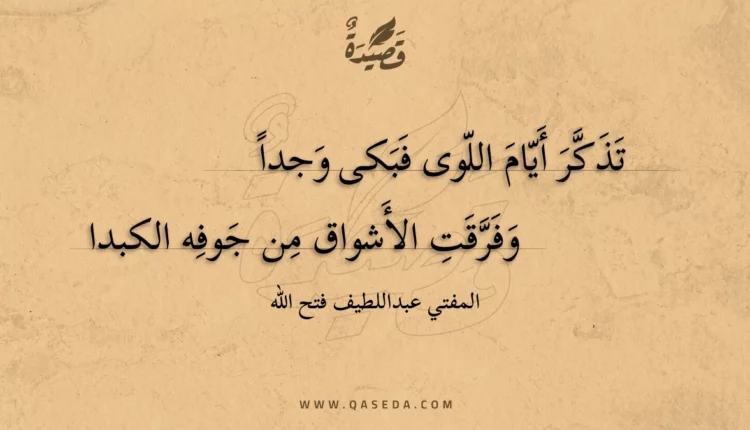 قَصِيْدَةٌ
تَذَكَّرَ أَيّامَ اللّوى فَبَكى وَجداً
وَفَرَّقَتِ الأَشواق مِن جَوفِه الكبدا
المفتي عبداللطيف فتح الله
WWW.QASEDA.COM